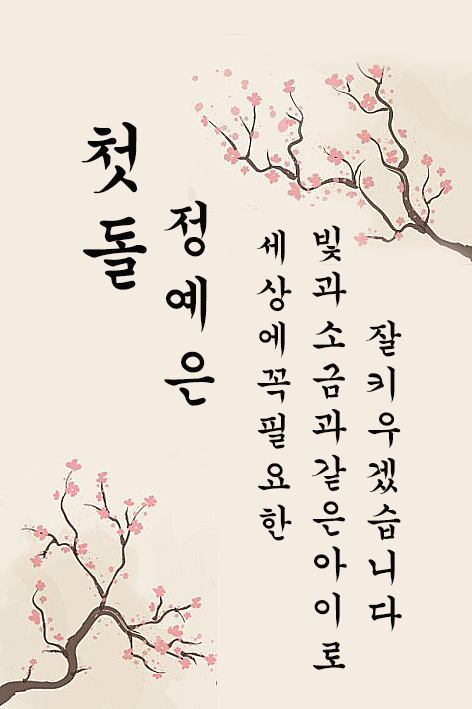 첫돌
정예은
세상에꼭필요한
빛과소금과같은아이로
잘키우겠습니다